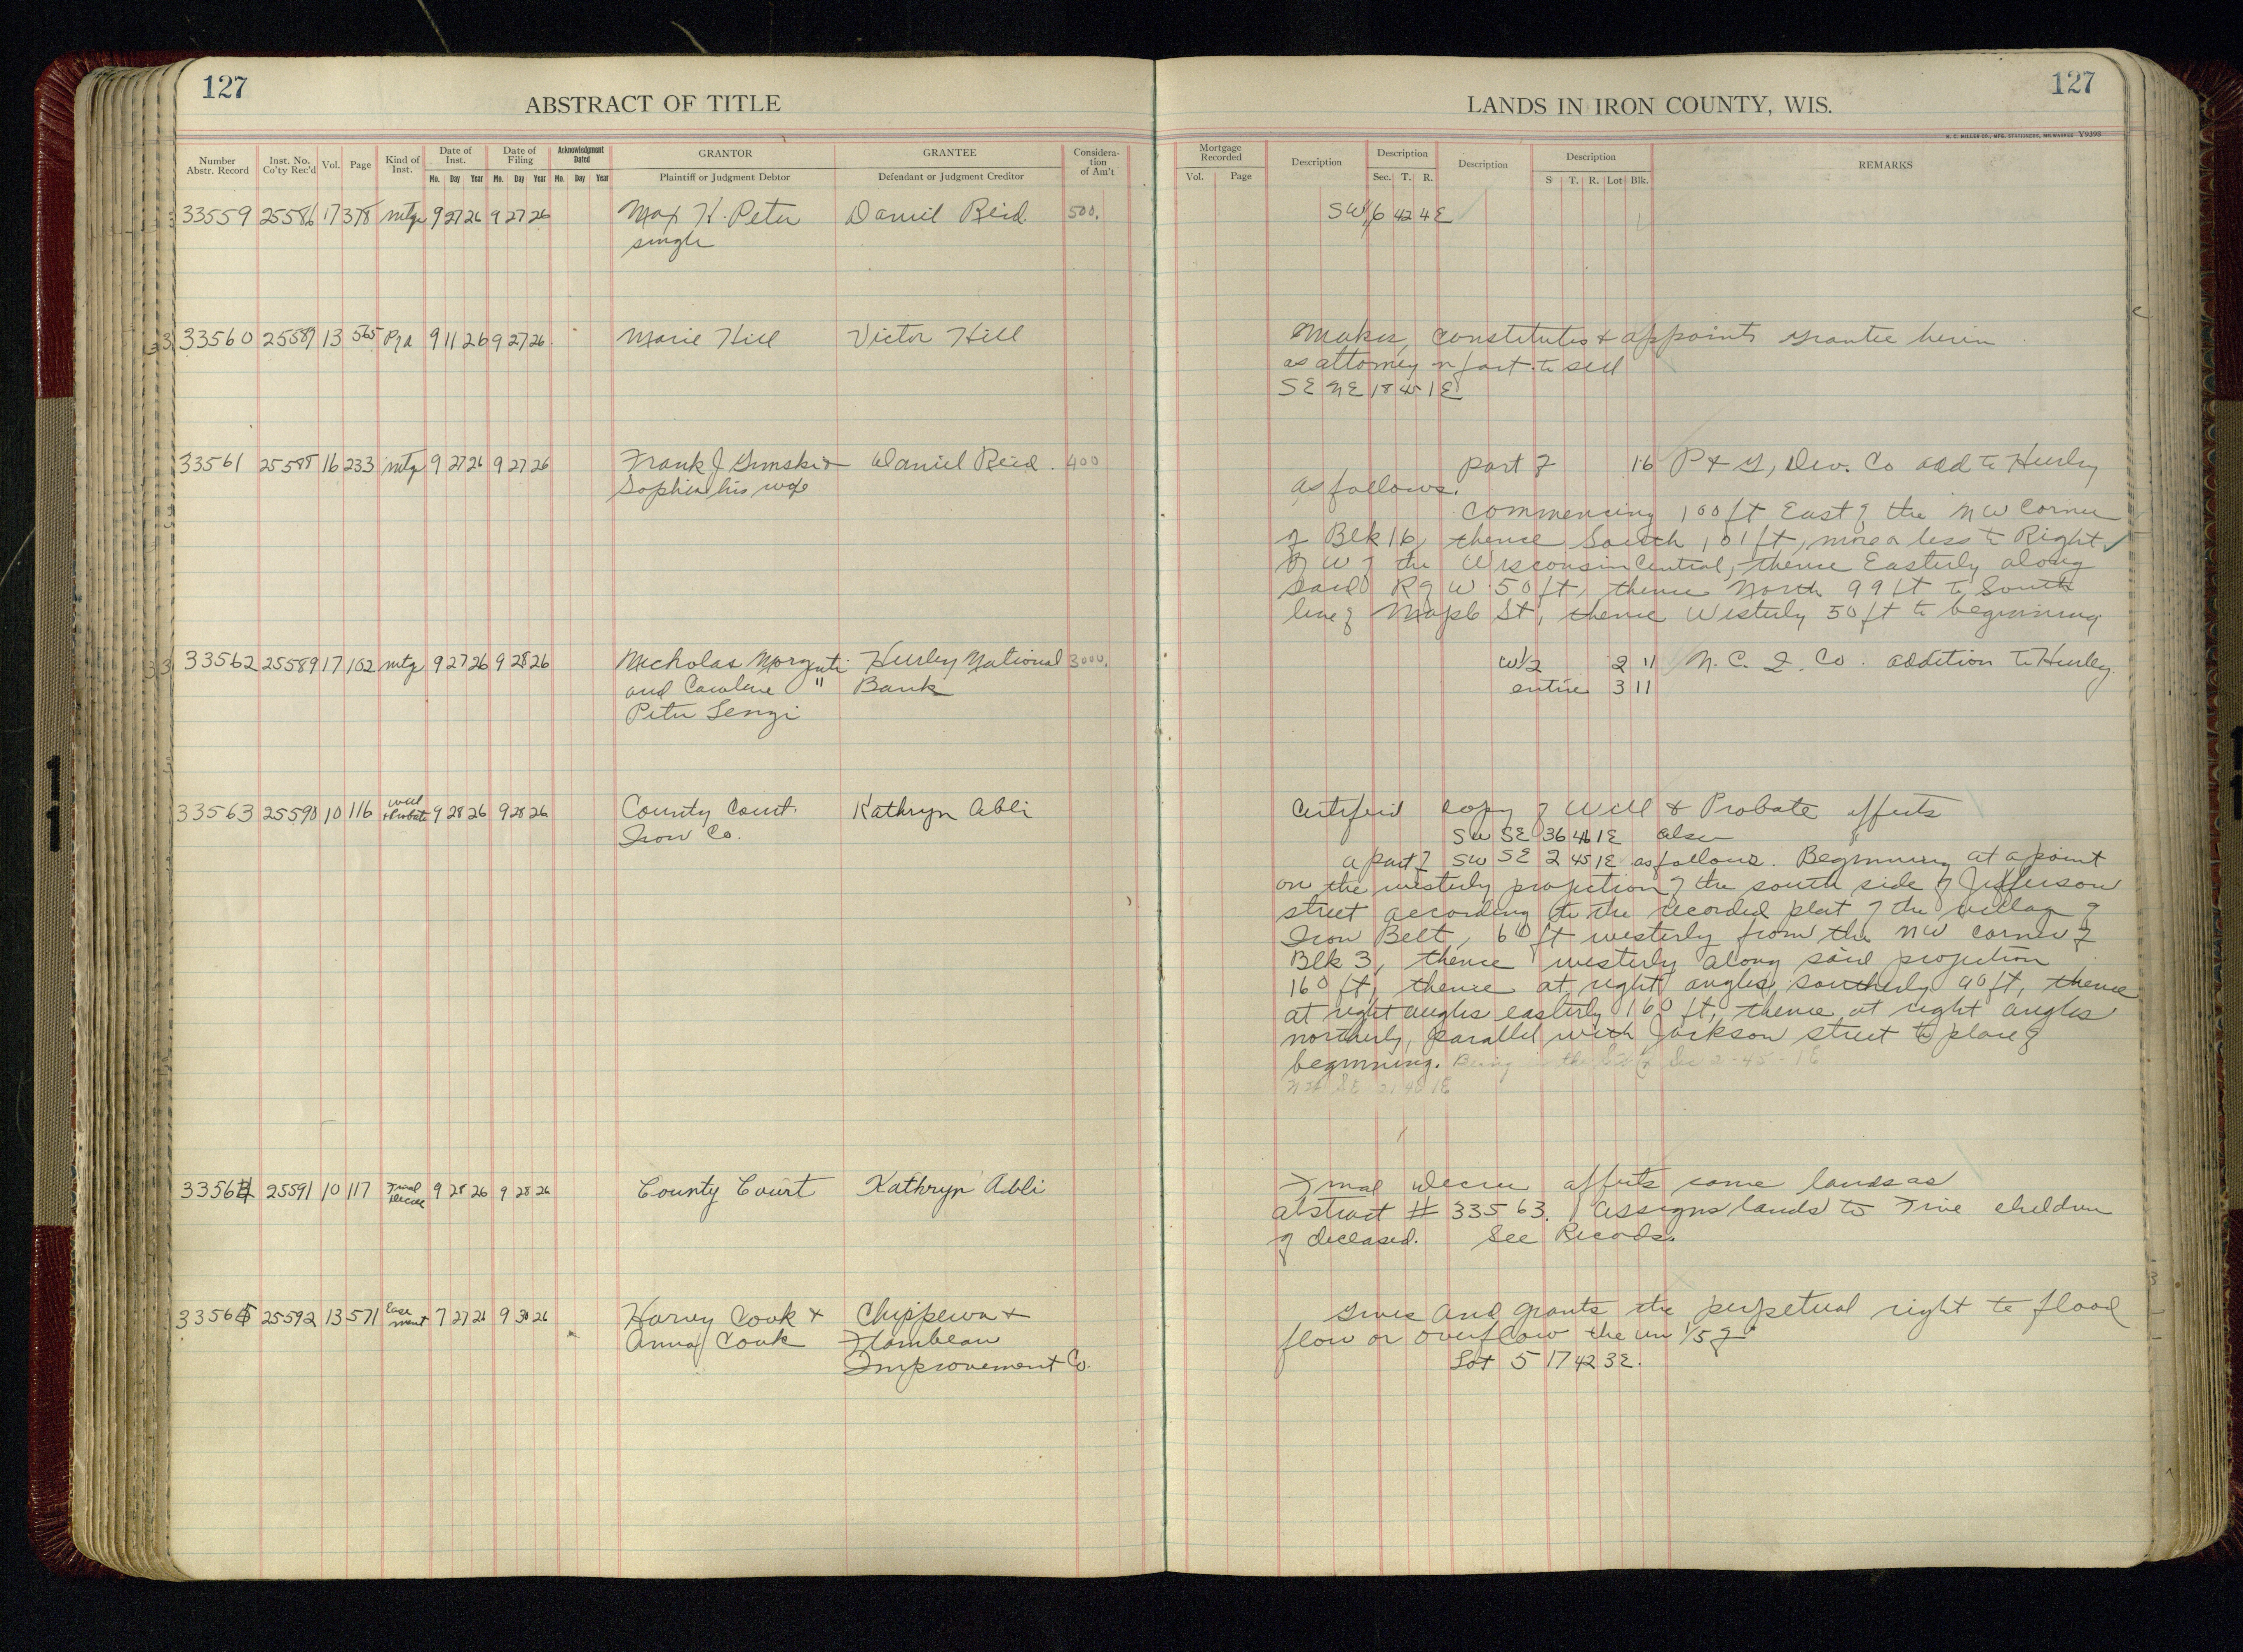 127
ABSTRACT OF TITLE
LANDS IN IRON COUNTY, WIS.
127
H. C. MILLER CO., MFG. STATIONERS, MILWAUKEE Y9398
Number Abstr. Record Inst. No. Co'ty Rec'd Vol. Page Kind of Inst. Date of Inst. Mo. Day Year Date of Filing Mo. Day Year Acknowledgment Dated Mo. Day Year GRANTOR Plaintiff or Judgment Debtor GRANTEE Defendant or Judgment Creditor Considera-tion of Am't
Mortgage Recorded Vol. Page Description Description Sec. T. R. Description Description S T. R. Lot Blk. REMARKS
33559 25586 17 378 mtge 9 27 26 9 27 26 Max H. Peter Daniel Reid 500. SW 6 42 4 E
single
33560 25587 13 565 P of A 9 11 26 9 27 26 Marie Hill Victor Hill Makes, constitutes & appoints grantee herein
as attorney in fact to sell
SE NE 18 45 1 E
33561 25588 16 233 mtg 9 27 26 9 27 26 Frank J & Daniel Reid. 400 part of 16 P & G, Dev. Co add to Hurley
Sophia his wife as follows.
Commencing 100 ft East of the NW Corner
of Blk 16, thence South 101 ft, more or less to Right
of W of the Wisconsin Central, thence Easterly along
said R of W 50 ft, thence North 99 ft to South
line of Maple St, thence Westerly 50 ft to beginning
33562 25589 17 102 mtge 9 27 26 9 28 26 Nicholas Hurley National 3000. W 1/2 2 11 N. C. I. Co. addition to Hurley.
and Caroline " Bank entire 3 11
Peter Lenzi
33563 25590 10 116 Will & Probate 9 28 26 9 28 26 County Court. Kathryn Abli Certified copy of Will & Probate affects
Iron Co. SW SE 36 46 1 E also
a part of SW SE 2 45 1 E as follows. Beginning at a point
on the westerly projection of the south side of Jefferson
street according to the recorded plat of the village of
Iron Belt, 60 ft westerly from the NW corner of
Blk 3, thence westerly along said projection
160 ft, thence at right angles, southerly 90 ft, thence
at right angles easterly 160 ft, thence at right angles
northerly, parallel with Jackson street to place of
beginning. Being in the Sec 2-45-1E
33564 25591 10 117 Final decree 9 28 26 9 28 26 County Court Kathryn Abli Final decree affects same lands as
abstract # 33563. Assigns lands to Five children
of deceased. See Records.
33565 25592 13 571 Ease ment 7 27 26 9 30 26 Harvey Cook & Chippewa & Gives and grants the perpetual right to flood
Anna Cook Flambeau flow or overflow the un 1/5 of
Improvement Co. Lot 5 17 42 3 E.